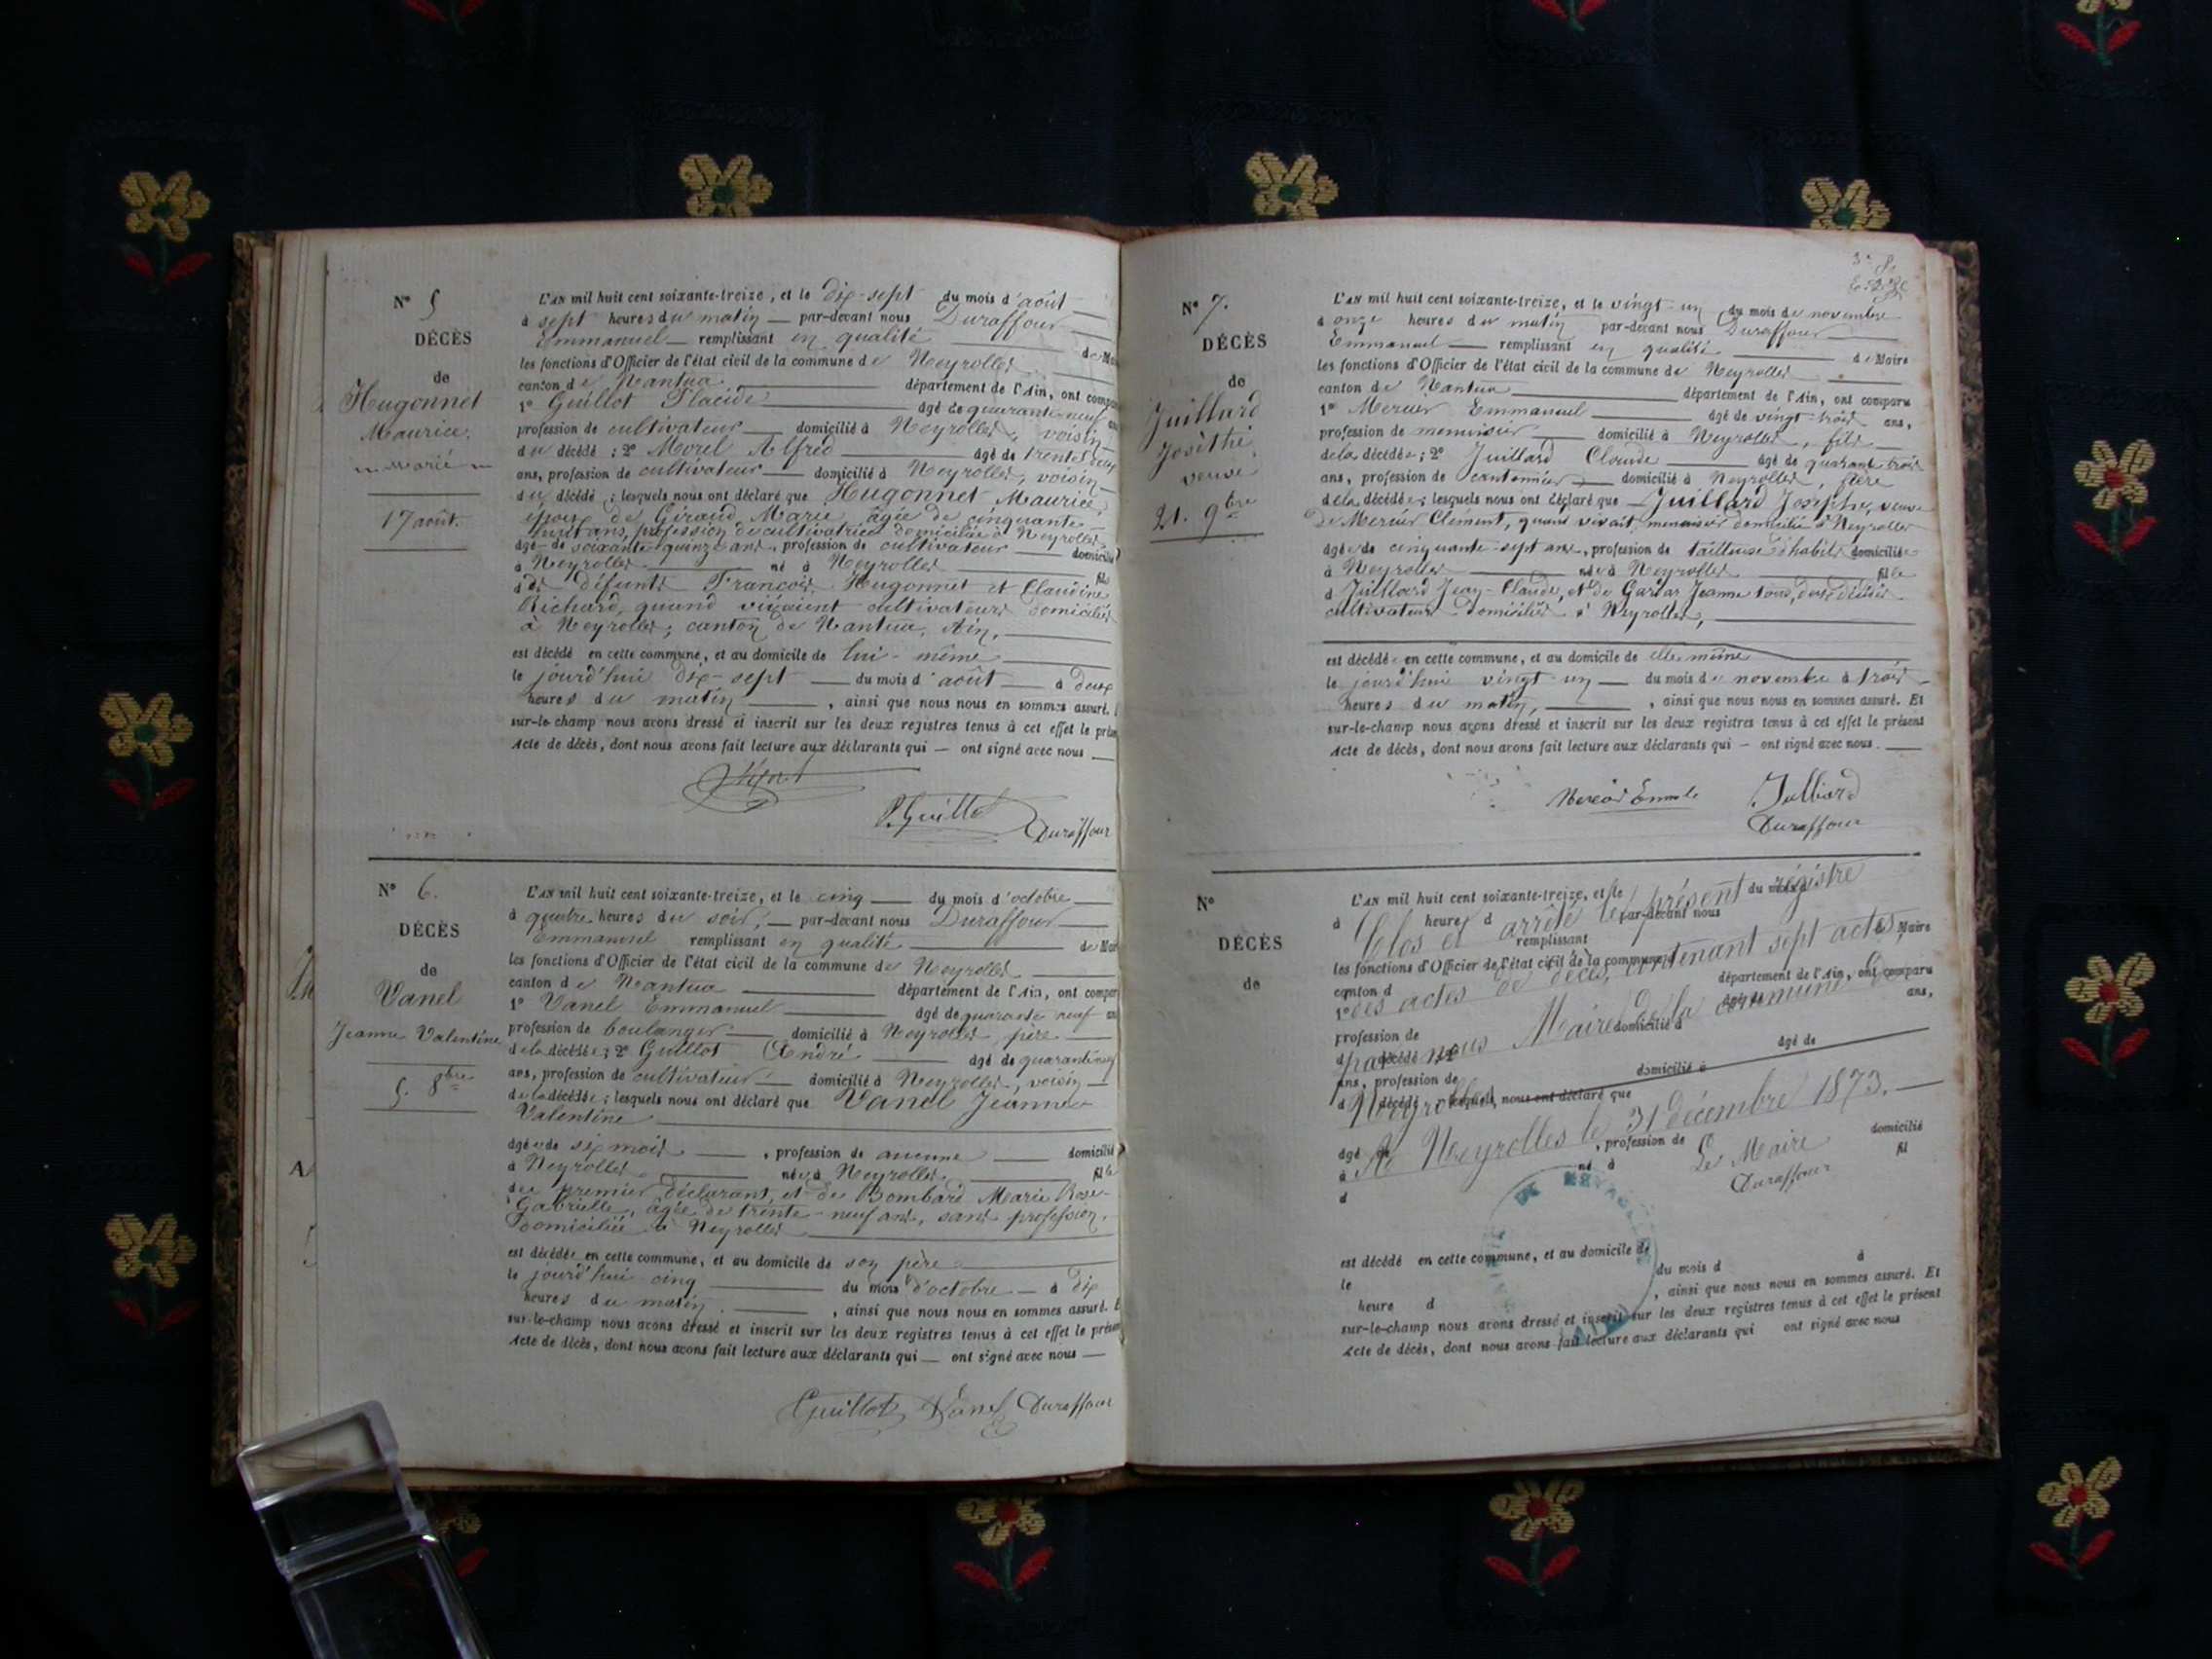 N° 5
DÉCÈS
de
Hugonnet
Maurice,
marié
17 août.
L'AN mil huit cent soixante-treize, et le dix-sept du mois d'août
à sept heures du matin par-devant nous Duraffour
Emmanuel remplissant en qualité de Mai
les fonctions d'Officier de l'état civil de la commune de Neyrolles
canton de Nantua département de l'Ain, ont compar
1° Guillot Placide âgé de quarante-neuf an
profession de cultivateur domicilié à Neyrolles, voisin
du décédé ; 2° Morel Alfred âgé de trente
ans, profession de cultivateur domicilié à Neyrolles, voisin
du décédé ; lesquels nous ont déclaré que Hugonnet Maurice,
époux de Giraud Marie âgée de cinquante-
huit ans, profession de cultivatrice domiciliée à Neyrolles
âgé de soixante-quinze ans, profession de cultivateur domicilié
à Neyrolles né à Neyrolles fils
d des défunts François Hugonnet et Claudine
Richard, quand vivaient cultivateurs domiciliés
à Neyrolles, canton de Nantua, Ain,
est décédé en cette commune, et au domicile de lui-même
le jourd'hui dix-sept du mois d'août à deux
heures du matin, ainsi que nous nous en sommes assuré.
sur-le-champ nous avons dressé et inscrit sur les deux registres tenus à cet effet le prése
Acte de décès, dont nous avons fait lecture aux déclarants qui — ont signé avec nous
P. Guillot
Duraffour
N° 6.
DÉCÈS
de
Vanel
Jeanne Valentine
5. 8bre
L'AN mil huit cent soixante-treize, et le cinq du mois d'octobre
à quatre heures du soir, par-devant nous Duraffour
Emmanuel remplissant en qualité de Mai
les fonctions d'Officier de l'état civil de la commune de Neyrolles
canton de Nantua département de l'Ain, ont compar
1° Vanel Emmanuel âgé de quarante neuf an
profession de boulanger domicilié à Neyrolles, père
de la décédée ; 2° Guillot André âgé de quarante
ans, profession de cultivateur domicilié à Neyrolles, voisin
de la décédée ; lesquels nous ont déclaré que Vanel Jeanne
Valentine
âgée de six mois, profession de aucune domicilié
à Neyrolles, née à Neyrolles, fille
du premier déclarant, et de Bombard Marie Rose-
Gabrielle, âgée de trente-neuf ans, sans profession,
domiciliée à Neyrolles
est décédée en cette commune, et au domicile de son père
le jourd'hui cinq du mois d'octobre à dix
heures du matin, ainsi que nous nous en sommes assuré. E
sur-le-champ nous avons dressé et inscrit sur les deux registres tenus à cet effet le présen
Acte de décès, dont nous avons fait lecture aux déclarants qui — ont signé avec nous
Guillot Vanel Duraffour
N° 7.
DÉCÈS
de
Juillard
veuve
21. 9bre
L'AN mil huit cent soixante-treize, et le vingt-un du mois de novembre
à onze heures du matin par-devant nous Duraffour
Emmanuel remplissant en qualité de Maire
les fonctions d'Officier de l'état civil de la commune de Neyrolles
canton de Nantua département de l'Ain, ont comparu
1° Mercier Emmanuel âgé de vingt-trois ans,
profession de menuisier domicilié à Neyrolles, fils
de la décédée ; 2° Juillard Claude âgé de quarante trois
ans, profession de cantonnier domicilié à Neyrolles, frère
de la décédée ; lesquels nous ont déclaré que Juillard Josephe, veuve
de Mercier Clément, quand vivait, menuisier domicilié à Neyrolles
âgée de cinquante-sept ans, profession de tailleuse d'habits domiciliée
à Neyrolles née à Neyrolles fille
d Juillard Jean-Claude, et de Jeanne tous deux décédés
cultivateurs domiciliés à Neyrolles,
est décédée en cette commune, et au domicile de elle même
le jourd'hui vingt-un du mois de novembre à trois
heures du matin, ainsi que nous nous en sommes assuré. Et
sur-le-champ nous avons dressé et inscrit sur les deux registres tenus à cet effet le présent
Acte de décès, dont nous avons fait lecture aux déclarants qui — ont signé avec nous.
Juilliard
Duraffour
N°
DÉCÈS
de
L'AN mil huit cent soixante-treize, et le du mois d
à heure d par-devant nous
remplissant de Maire
les fonctions d'Officier de l'état civil de la commune d
canton d département de l'Ain, ont comparu
1° âgé de ans,
profession de domicilié à
d décédé 2° âgé de
ans, profession de domicilié à
d décédé lesquels nous ont déclaré que
âgé de , profession de domicilié
à né à fil
d
Clos et arrêté le présent régistre
des actes de décès, contenant sept actes,
par nous Maire de la commune de
Neyrolles,
A Neyrolles le 31 décembre 1873.
Le Maire
Duraffour
est décédé en cette commune, et au domicile de
le du mois d à
heure d , ainsi que nous nous en sommes assuré. Et
sur-le-champ nous avons dressé et inscrit sur les deux registres tenus à cet effet le présent
Acte de décès, dont nous avons fait lecture aux déclarants qui ont signé avec nous